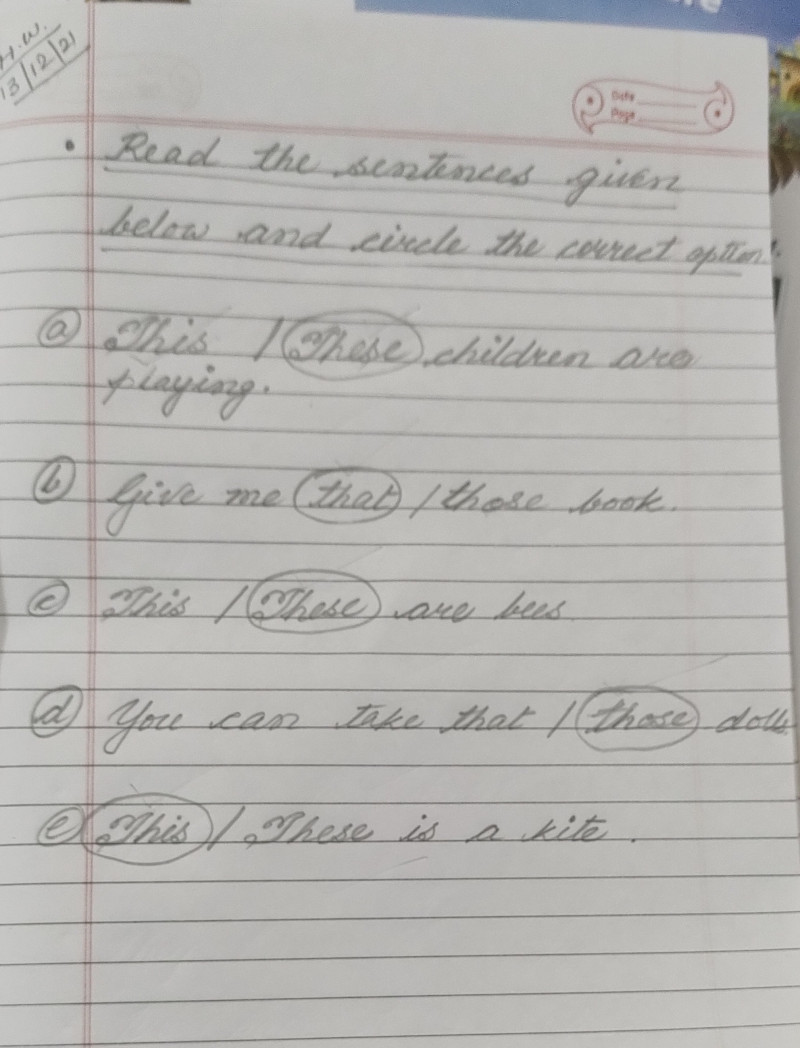 H.W.
13/12/21
Date
Page
• Read the sentences given
below and circle the correct option.
(a) This / These children are
playing.
(b) Give me that / those book.
(c) This / These are bees
(d) You can take that / those dolls
(e) This / These is a kite.